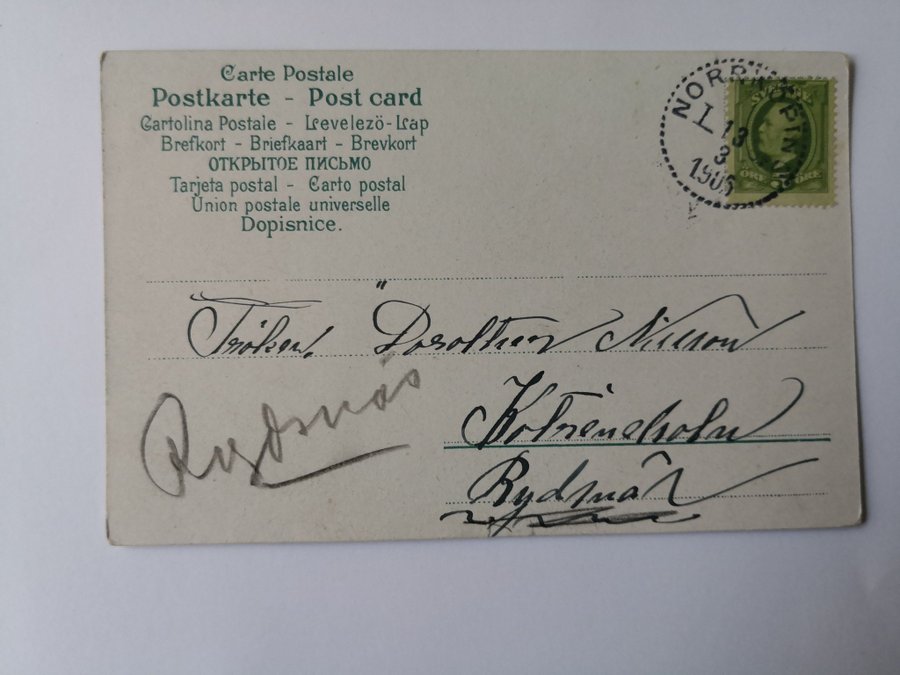 Carte Postale
Postkarte - Post card
Cartolina Postale - Levelező-Lap
Brefkort - Briefkaart - Brevkort
ОТКРЫТОЕ ПИСЬМО
Tarjeta postal - Carto postal
Union postale universelle
Dopisnice.
NORRKÖPING
L
13
3
190
SVERIGE
ÖRE ÖRE
Fröken Dorothea Nilsson
Rydsnäs